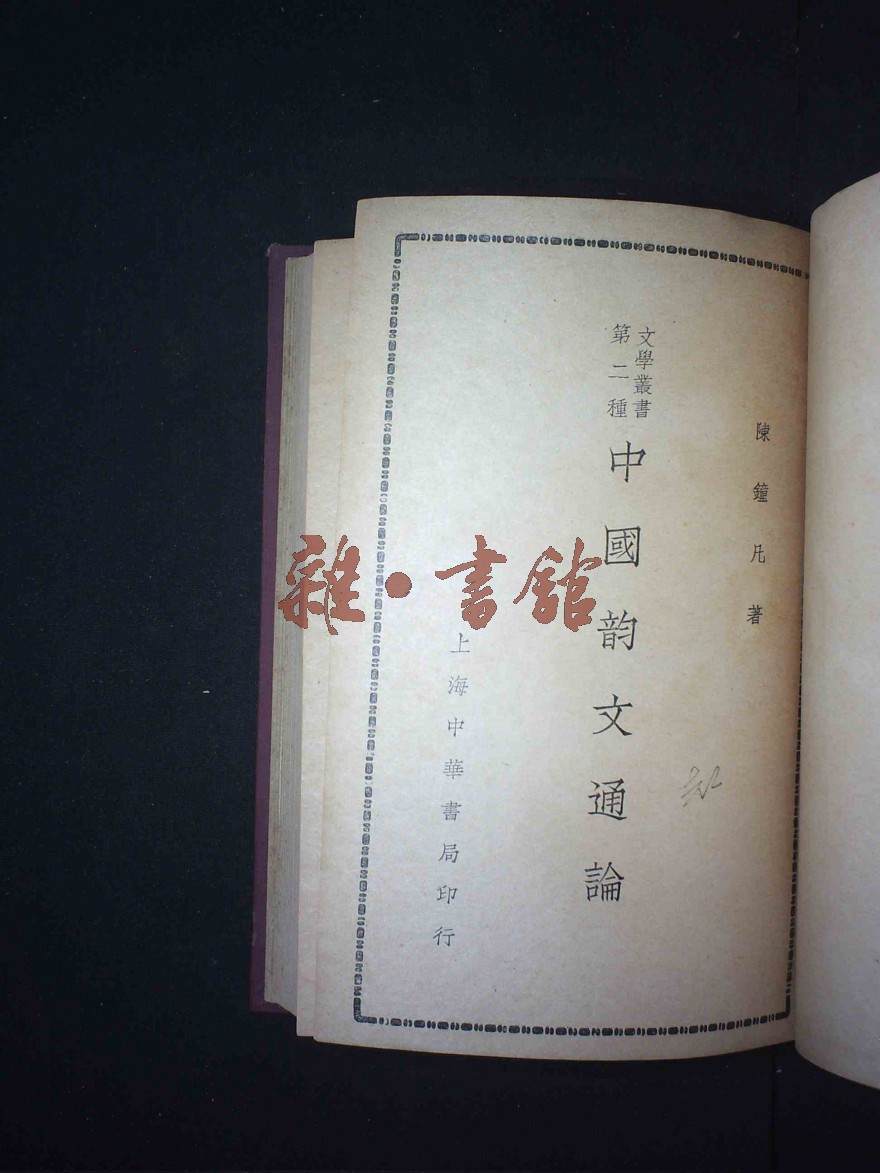 陳鐘凡著
文學叢書
第二種
中國韵文通論
上海中華書局印行
雜·書館